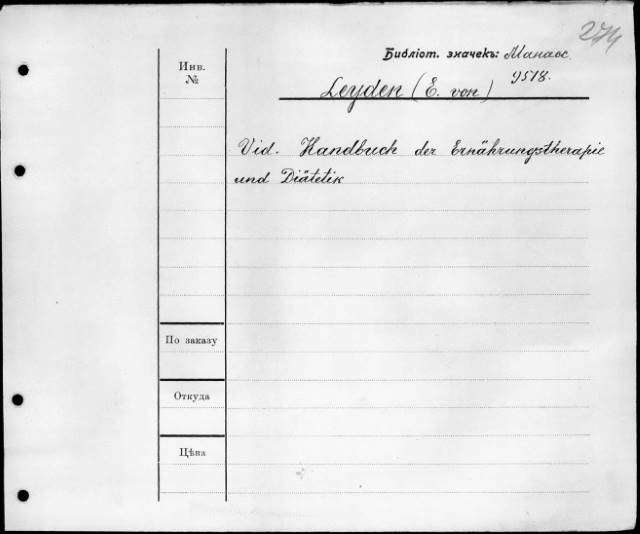 274
Библіот. значекъ: Манасс.
9518.
Инв.
№
Leyden (E. von)
Vid. Handbuch der Ernährungstherapie
und Diätetik
По заказу
Откуда
Цѣна